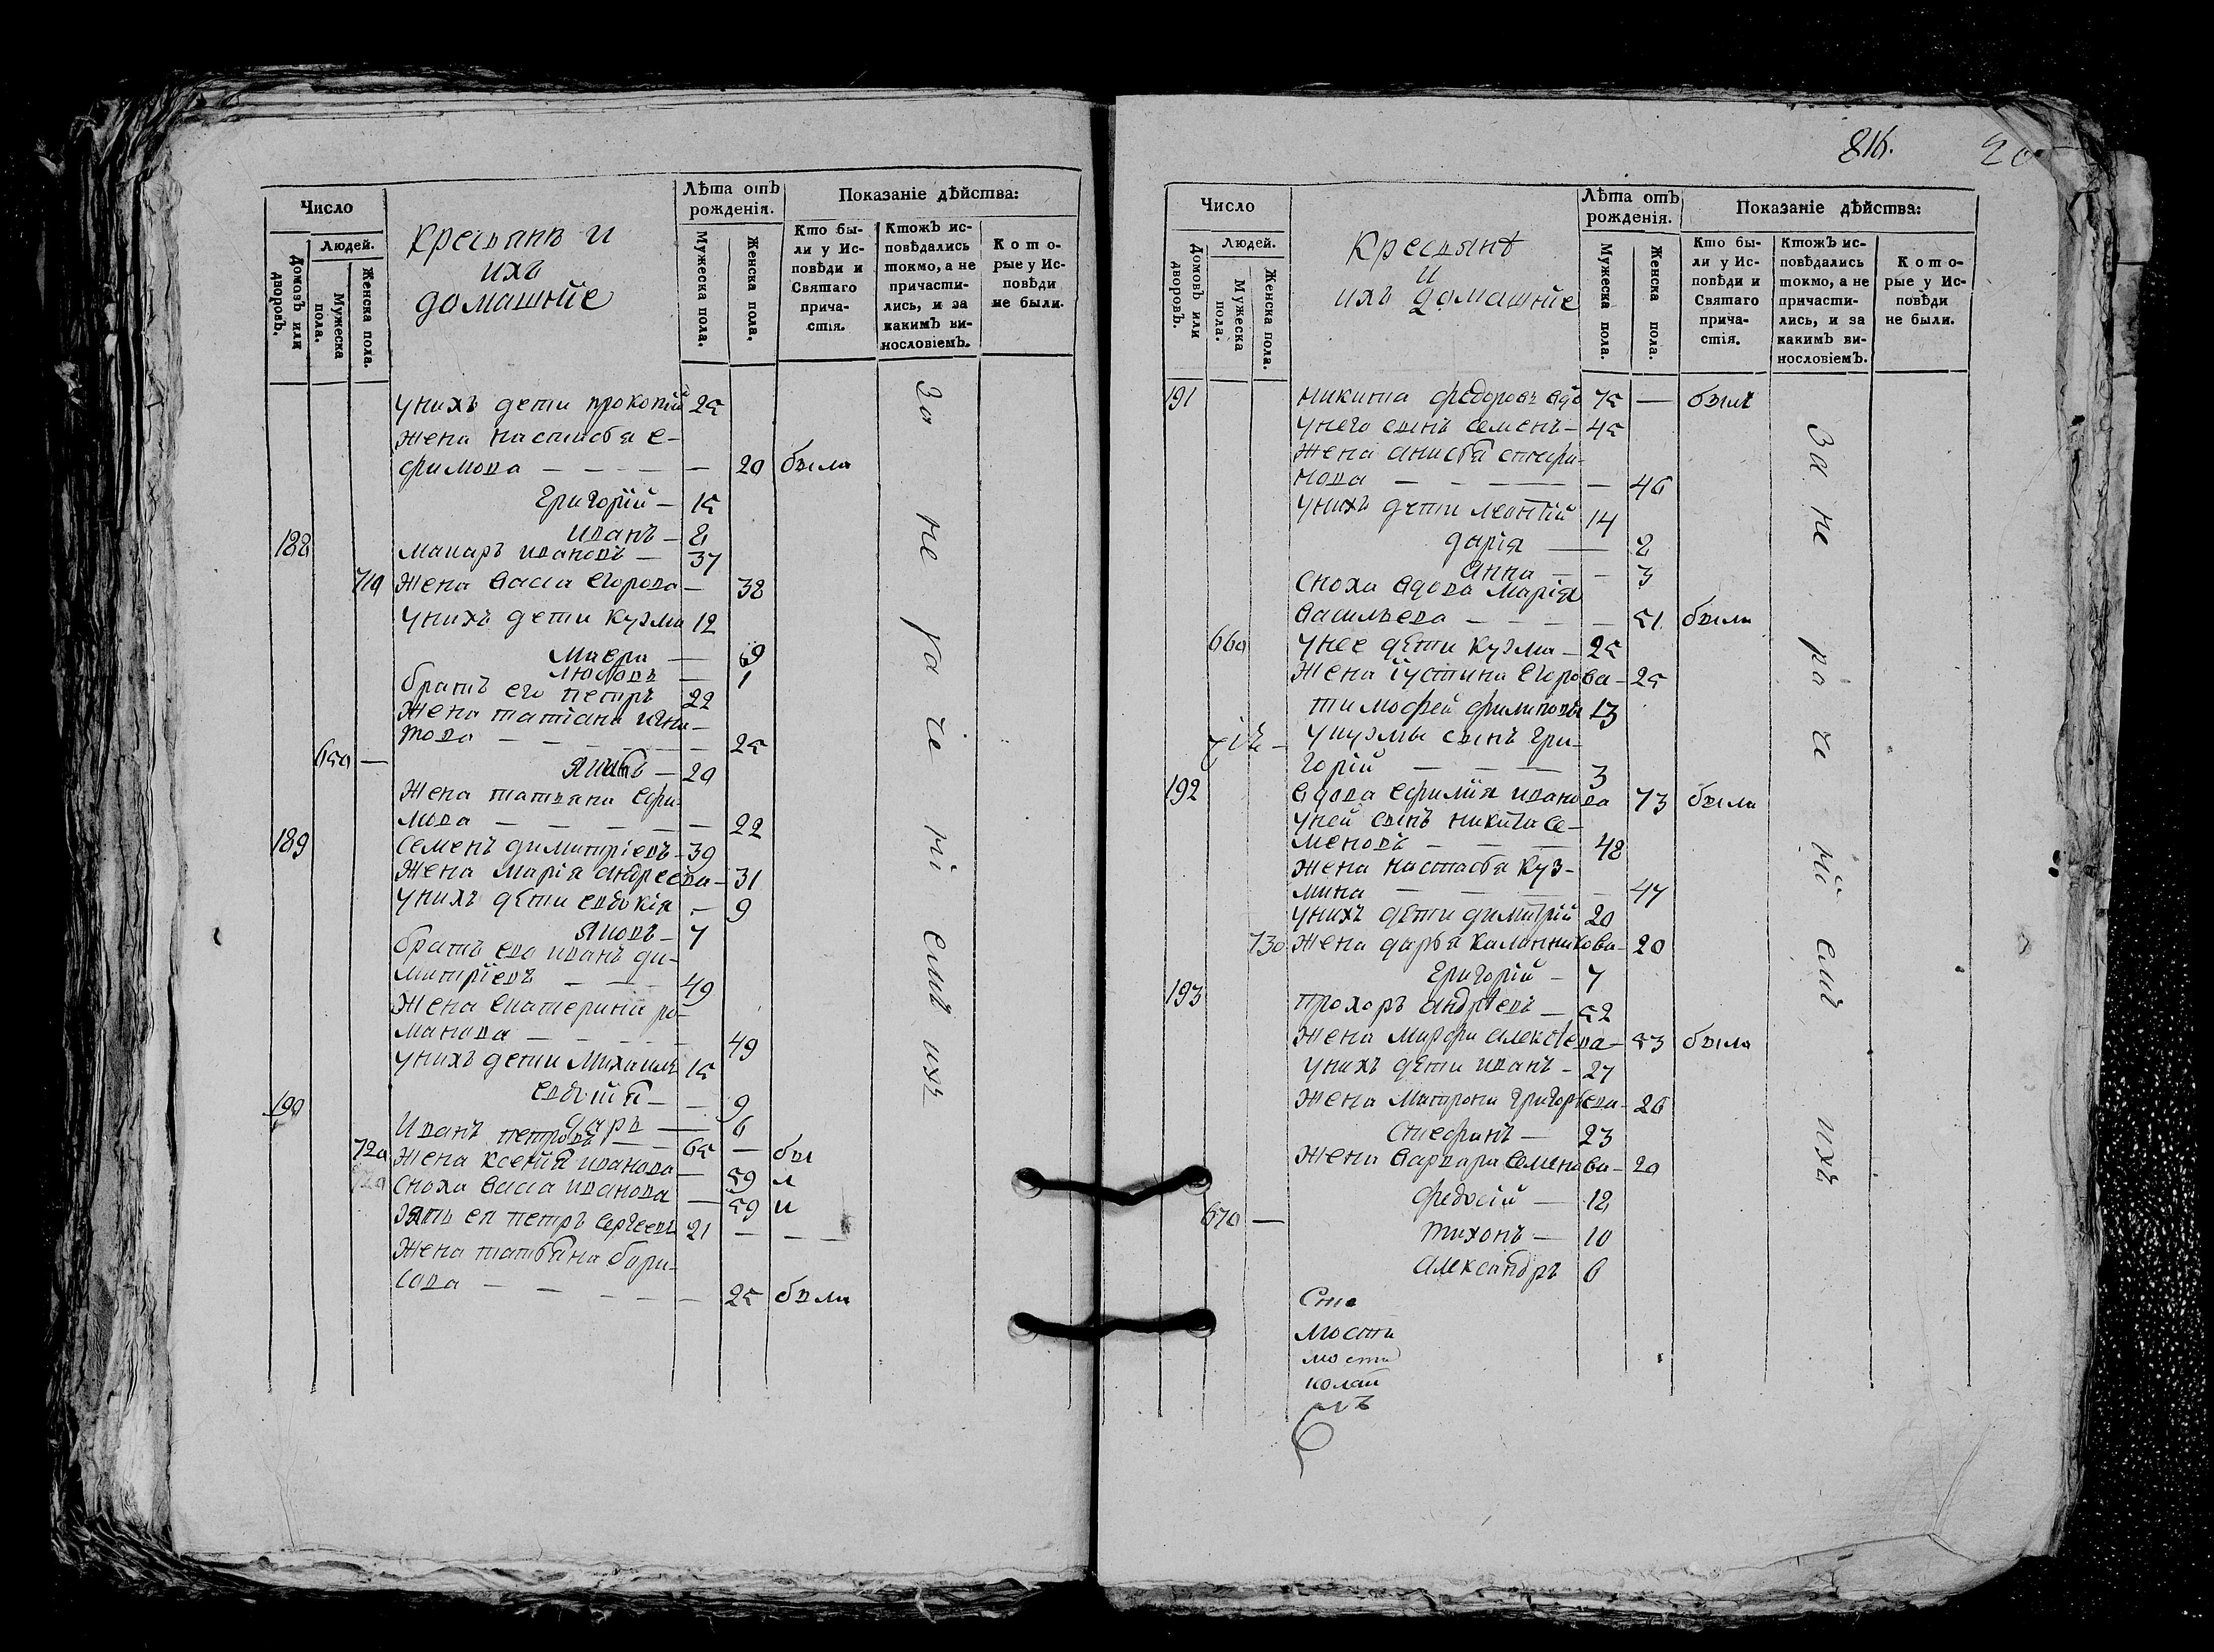 Число
Людей.
Домовъ или дворовъ.
Мужеска пола.
Женска пола.
крестьянъ и
ихъ
домашніе
Лѣта отъ рожденія.
Мужеска пола.
Женска пола.
Показаніе дѣйства:
Кто бы-
ли у Ис-
повѣди и
Святаго
прича-
стія.
Ктожъ ис-
повѣдались
токмо, а не
причасти-
лись, и за
какимъ ви-
нословіемъ.
Кото-
рые у Ис-
повѣди
не были.
унихъ дети прокопій 25
жена настасья е-
фимова — 20 были
григорій — 15
иванъ — 2
188 макаръ ивановъ — 37
710 жена васса егорова — 38
унихъ дети кузма 12
братъ его петръ 22
жена татіана
това — 25
650 —
20
жена татьяна ефи-
мова — 22
189 семенъ димитріевъ — 39
жена марія андреева — 31
унихъ дети евдокія — 9
яковъ — 7
братъ ево иванъ ди-
митріевъ — 49
жена екатерина ро-
манова — 49
унихъ дети михаилъ 15
9
190 дарь — 6
иванъ петровъ — 65 — бы
720 жена ксенія иванова — 59 л
сноха васса иванова — 59 и
зять ея петръ сергеевъ 21 — — —
жена татьяна бори-
сова — 25 были
За не ра че ні емъ ихъ
816.
20
Число
Людей.
Домовъ или дворовъ.
Мужеска пола.
Женска пола.
крестьянѣ
и
ихъ домашніе
Лѣта отъ рожденія.
Мужеска пола.
Женска пола.
Показаніе дѣйства:
Кто бы-
ли у Ис-
повѣди и
Святаго
прича-
стія.
Ктожъ ис-
повѣдались
токмо, а не
причасти-
лись, и за
какимъ ви-
нословіемъ.
Кото-
рые у Ис-
повѣди
не были.
191 никита федоровъ вдо 75 — были
унего сынъ семенъ — 45
жена анисья
нова — 46
унихъ дети леонтій 14
дарія — 2
анна — 3
сноха вдова марія
васильева — 51 были
660 унее дѣти кузма — 25
жена іустина егорова — 25
тимофей филиповъ 13
укузмы сынъ гри-
горій — 3
192 вдова ефимія иванова 73 были
уней сынъ никита се-
меновъ — 48
жена настасья куз-
мина — 47
унихъ дѣти димитрій 20
730 жена дарья калинникова — 20
григорій — 7
193 прохоръ андреевъ — 52
жена марфа алексѣева — 53 были
унихъ дѣти иванъ — 27
жена матрона григорьева — 26
стефанъ — 23
жена варвара семенова — 20
федосій — 12
670 — тихонъ — 10
александръ 6
мости
мости
колаи
мъ
За не ра че ні емъ ихъ